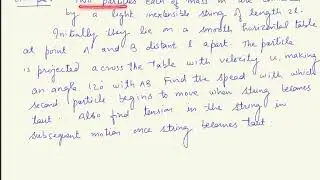 Two particles each of mass m are
by a light inextensible string of length 2l.
Initially they lie on a smooth horizontal table
at point A and B distant l apart. The particle
is projected across the table with velocity u, making
an angle 120 with AB Find the speed with which
second particle begins to move when string becomes
taut. Also find tension in the string in
subsequent motion once string becomes taut.